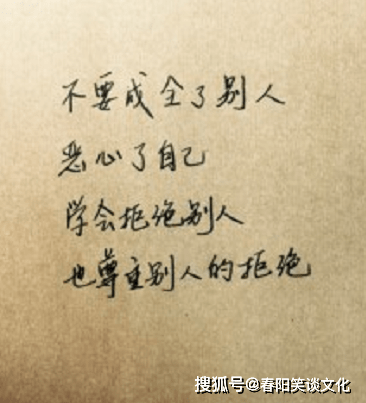 不要成全了别人
恶心了自己
学会拒绝别人
也尊重别人的拒绝
搜狐号@春阳笑谈文化